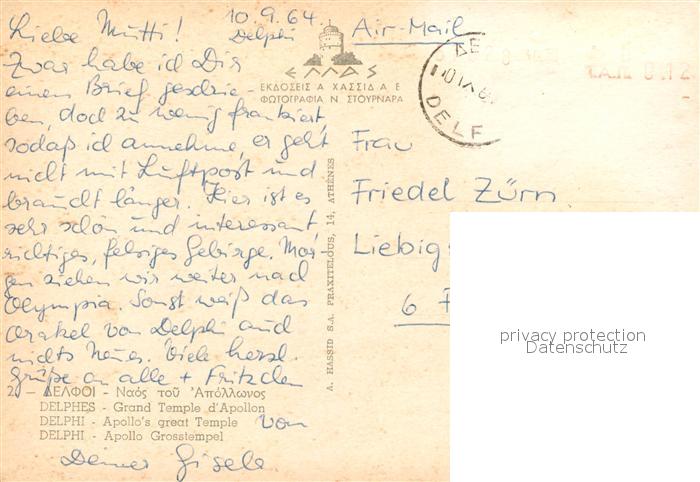 10.9.64.
Delphi
Liebe Mutti!
Zwar habe ich Dir
einen Brief geschrie-
ben, doch zu wenig frankiert,
sodaß ich annehme, er geht
nicht mit Luftpost und
braucht länger. Hier ist es
sehr schön und interessant,
richtiges, felsiges Gebirge. Mor-
gen ziehen wir weiter nach
Olympia. Sonst weiß das
Orakel von Delphi auch
nichts Neues. Viele herzl.
Grüße an alle + Fritzchen
von
Deiner Gisela.
ΕΛΛΑΣ
ΕΚΔΟΣΕΙΣ Α ΧΑΣΣΙΔ Α Ε
ΦΩΤΟΓΡΑΦΙΑ Ν ΣΤΟΥΡΝΑΡΑ
2 - ΔΕΛΦΟΙ - Ναός τοῦ Ἀπόλλωνος
DELPHES - Grand Temple d'Apollon
DELPHI - Apollo's great Temple
DELPHI - Apollo Grosstempel
A. HASSID S.A. PRAXITELOUS, 14, ATHÈNES
Air-Mail
ΔΕ
DELF
0.12
Frau
Friedel Zürn
Liebig
6 F
privacy protection
Datenschutz